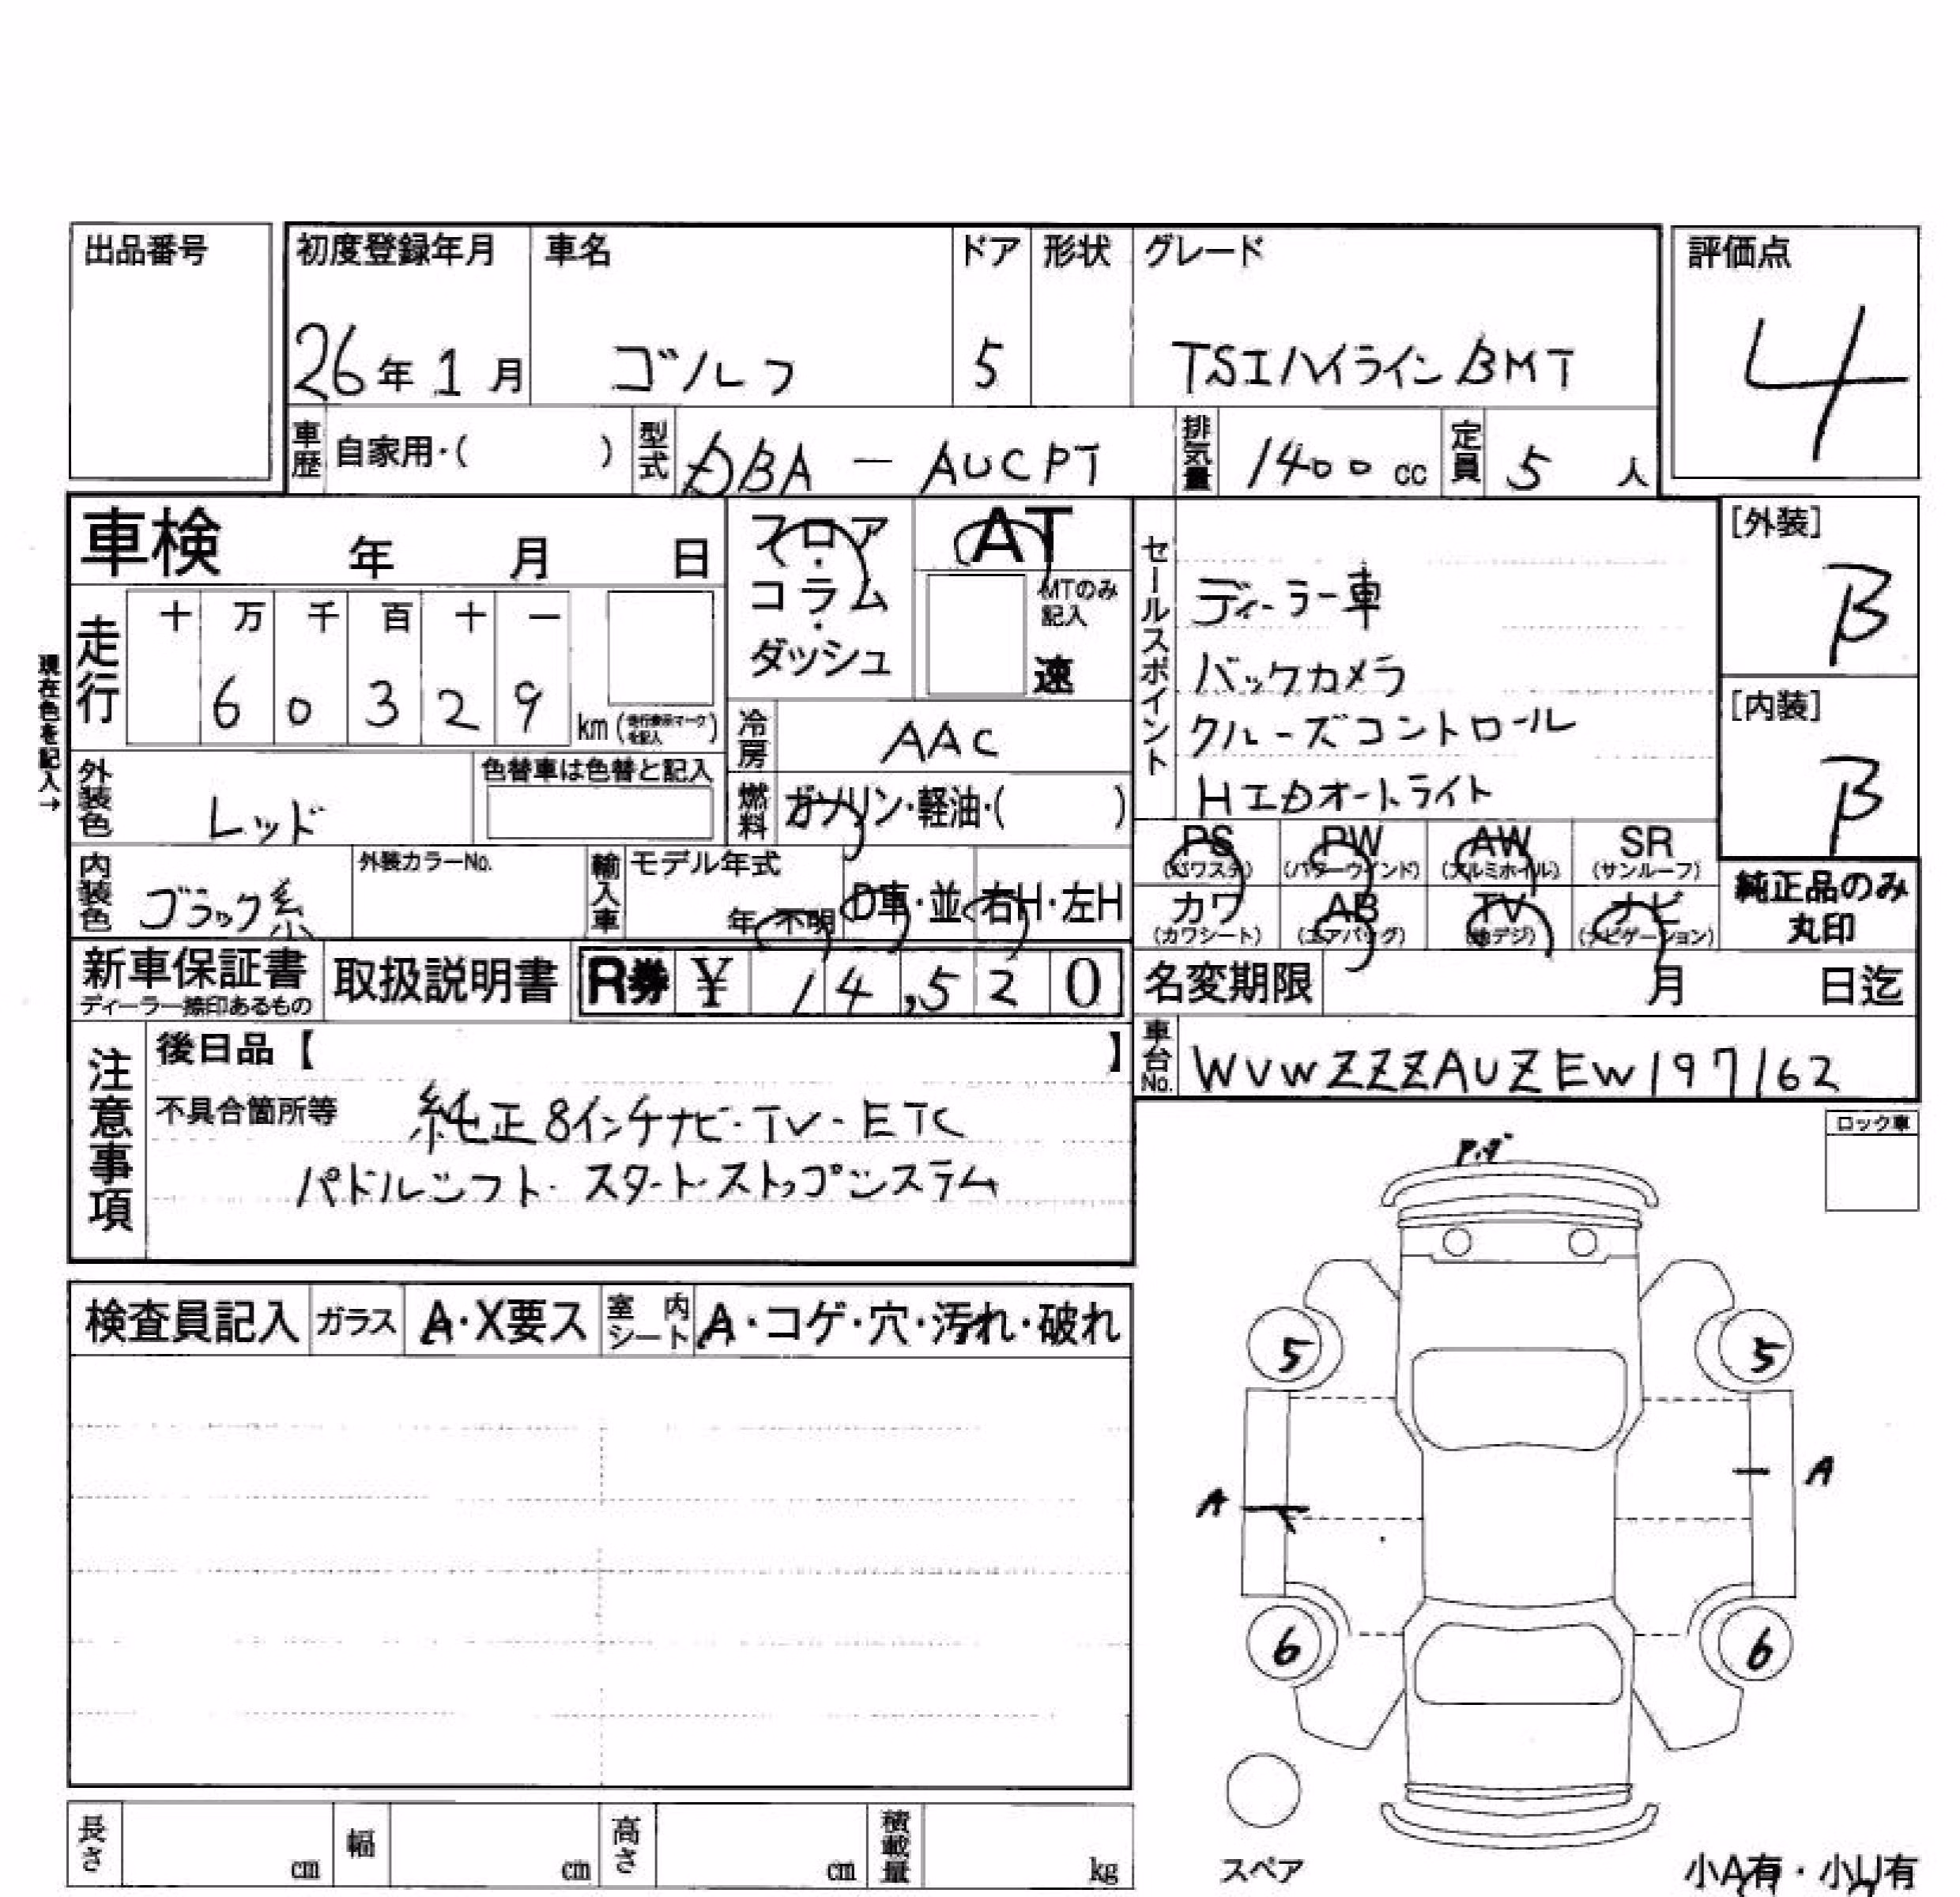 出品番号
初度登録年月 車名 ドア 形状 グレード 評価点
26年1月 ゴルフ 5 TSIハイラインBMT 4
車歴 自家用・( ) 型式 DBA - AUCPT 排気量 1400cc 定員 5人
車検 年 月 日
フロア・コラム・ダッシュ
AT
MTのみ記入
速
セールスポイント
ディーラー車
バックカメラ
クルーズコントロール
HIDオートライト
[外装]
B
[内装]
B
現在色を記入→
走行 十 万 千 百 十 一
6 0 3 2 9 km
冷房 AAC
外装色 レッド 色替車は色替と記入
燃料 ガソリン・軽油・( )
PS (パワステ) PW (パワーウインド) AW (アルミホイル) SR (サンルーフ)
カワ (カワシート) AB (エアバッグ) TV (地デジ) ナビ (ナビゲーション)
純正品のみ丸印
内装色 ブラック系 外装カラーNo. 輸入車 モデル年式 年 不明 D車・並 右H・左H
新車保証書 取扱説明書 R券 ¥ 14,520
ディーラー捺印あるもの
名変期限 月 日迄
車台No. WVWZZZAUZEW197162
注意事項
後日品【 】
不具合箇所等 純正8インチナビ・TV・ETC
パドルシフト・スタート・ストップシステム
ロック車
検査員記入 ガラス A・X要ス 室内シート A・コゲ・穴・汚れ・破れ
5 5
A
A
6 6
スペア
長さ cm 幅 cm 高さ cm 積載量 kg
小A有・小U有